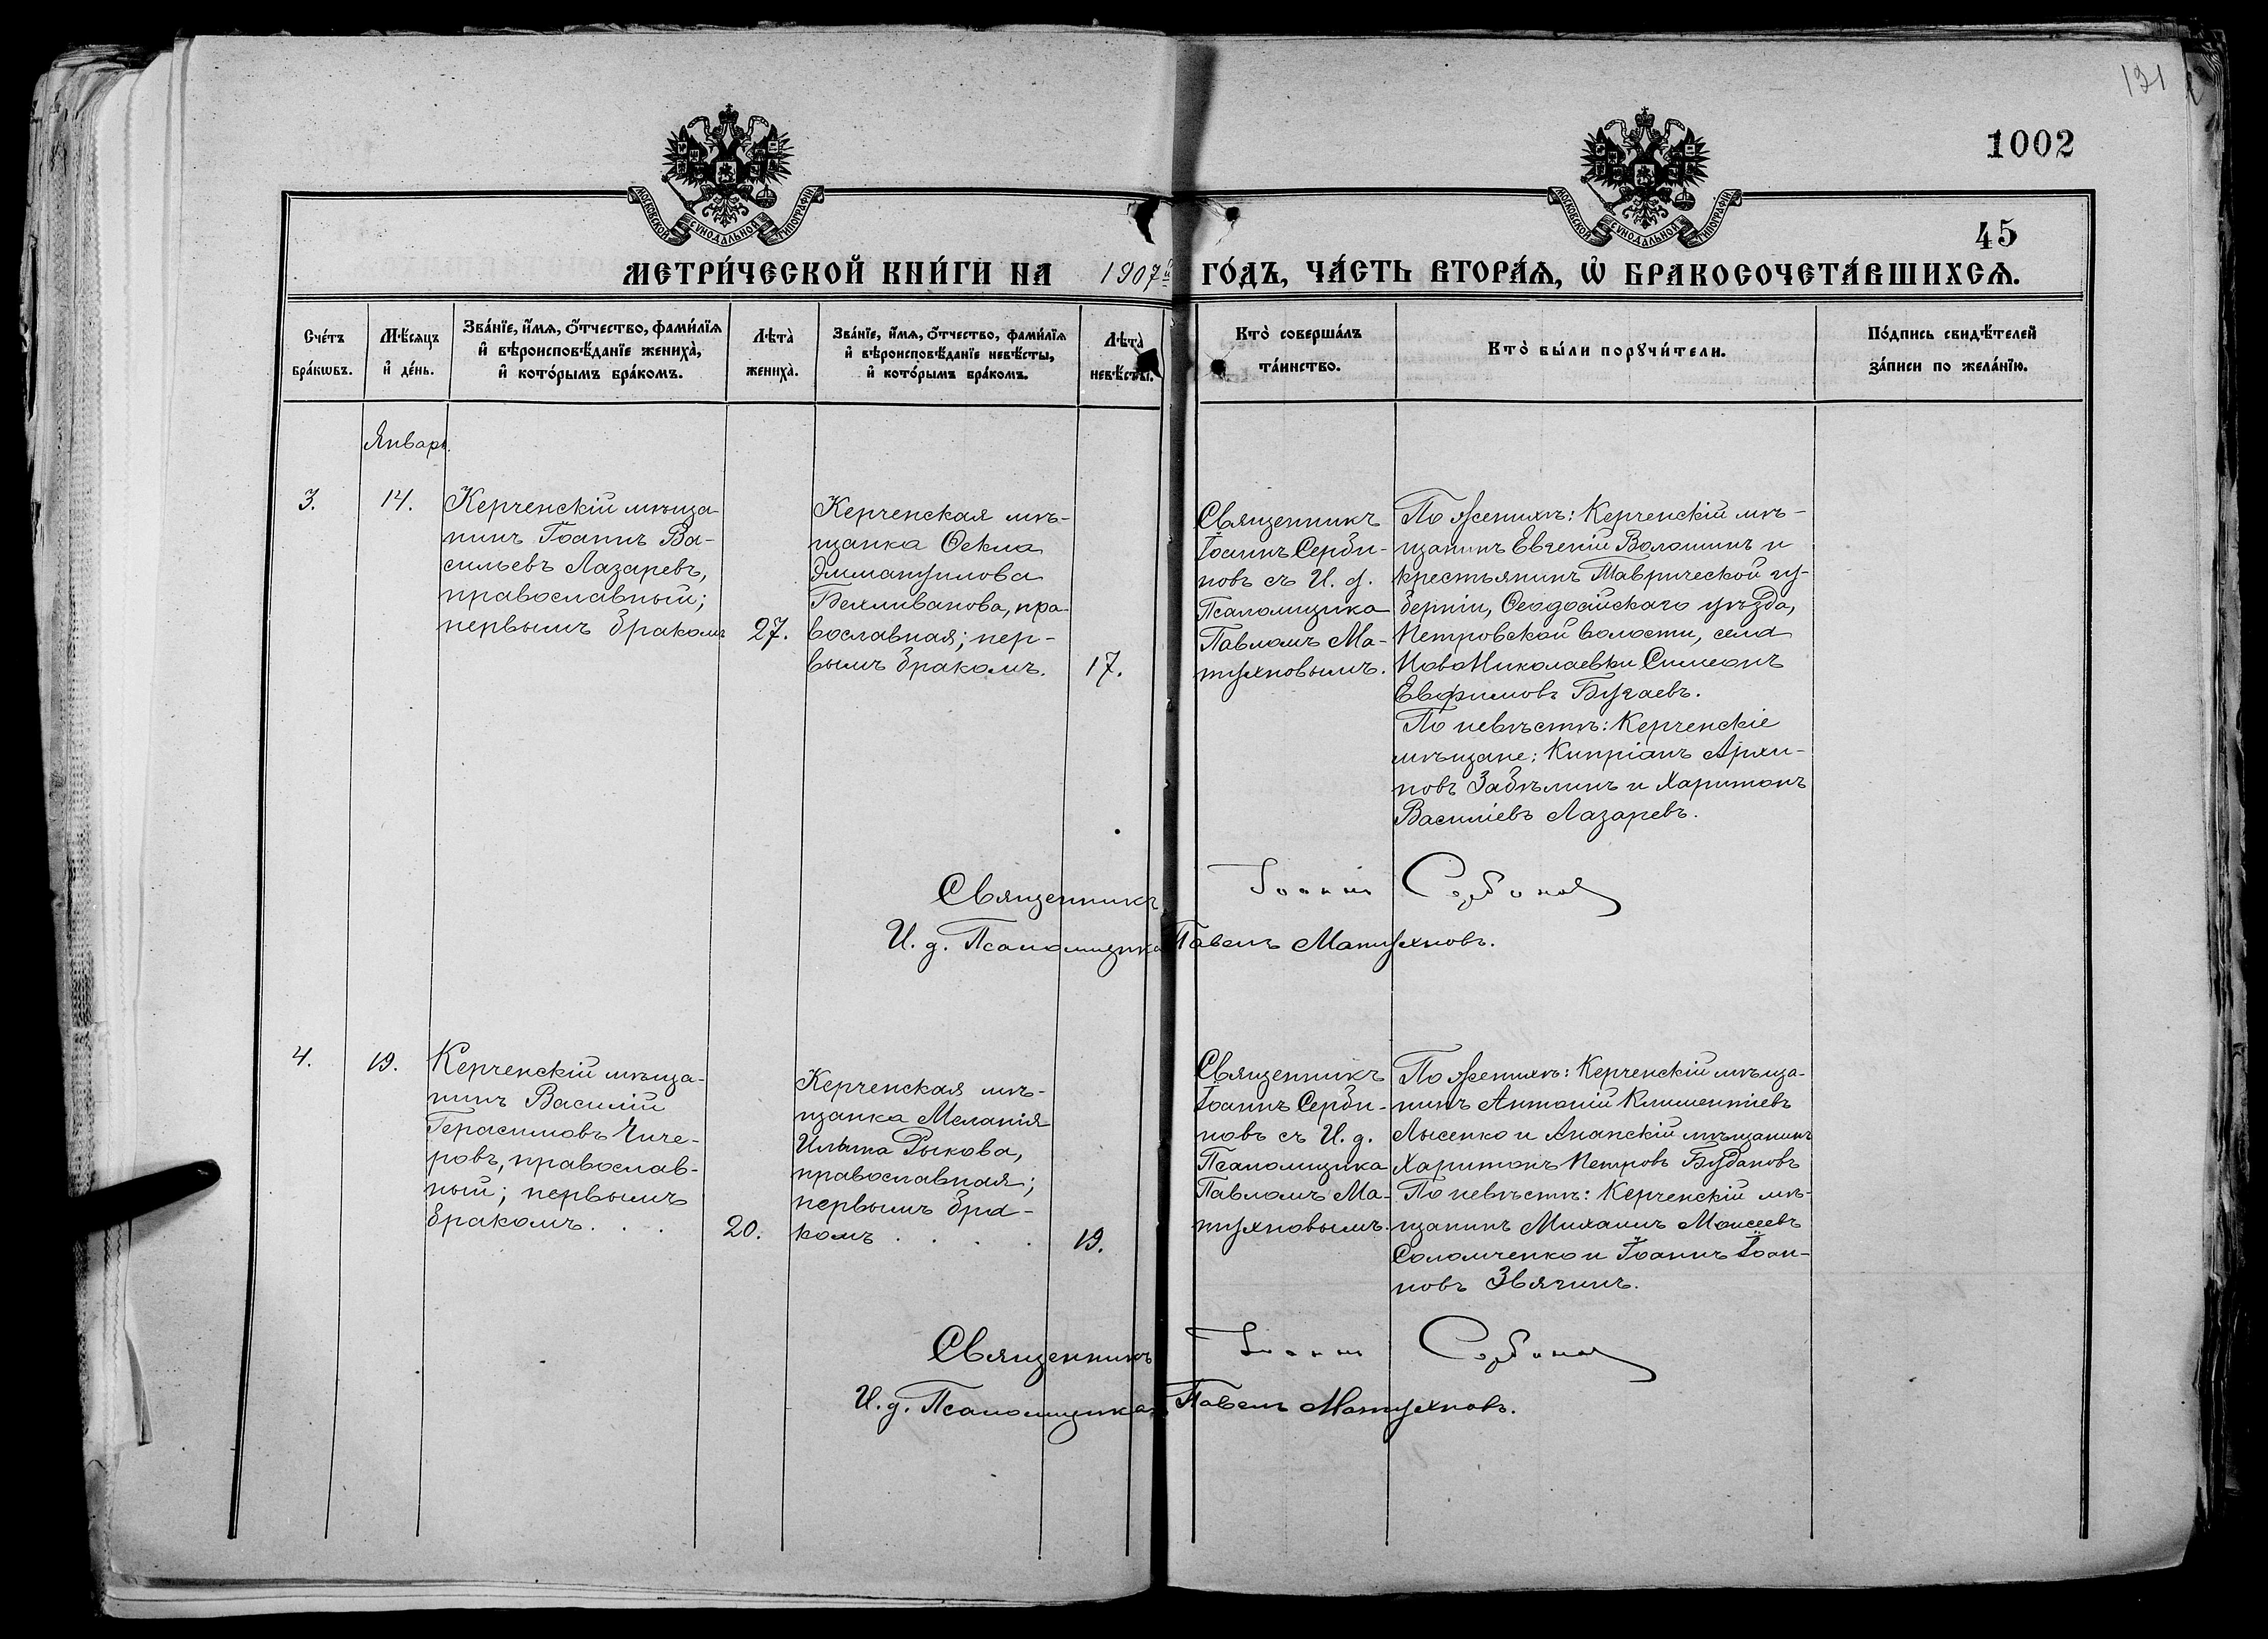 121
1002
45
МОСКОВСКОЙ СѴНОДАЛЬНОЙ ТИПОГРАФІИ
МОСКОВСКОЙ СѴНОДАЛЬНОЙ ТИПОГРАФІИ
МЕТРИ́ЧЕСКОЙ КНИ́ГИ НА 1907й ГО́ДЪ, ЧА́СТЬ ВТОРА́Ѧ, Ѽ БРАКОСОЧЕТА́ВШИХСѦ.
Сче́тъ
бра́кѡвъ.
Мѣ́сѧцъ
и҆ де́нь.
Зва́нїе, и҆́мѧ, ѻ҆́тчество, фами́лїѧ
и҆ вѣроисповѣ́данїе жениха̀,
и҆ кото́рымъ бра́комъ.
Лѣта̀
жениха̀.
Зва́нїе, и҆́мѧ, ѻ҆́тчество, фами́лїѧ
и҆ вѣроисповѣ́данїе невѣ́сты,
и҆ кото́рымъ бра́комъ.
Лѣта̀
невѣ́сты.
Кто̀ соверша́лъ
та́инство.
Кто̀ бы́ли порꙋчи́тели.
По́дпись свидѣ́телей
за́писи по жела́нїю.
Январь.
3.
14.
Керченскій мѣща
нинъ Іоаннъ Ва-
сильевъ Лазаревъ,
православный;
первымъ бракомъ
27.
Керченская мѣ-
щанка Ѳекла
Эммануилова
Бехливанова, пра-
вославная; пер-
вымъ бракомъ.
17.
Священникъ
Іоаннъ Серби-
новъ съ И. д.
Псаломщика
Павломъ Ма-
тухновымъ.
По женихѣ: Керченскій мѣ-
щанинъ Евгеній Волошинъ и
крестьянинъ Таврической гу-
берніи, Ѳеодосійскаго уѣзда,
Петровской волости, села
НовоНиколаевки Симеонъ
Евфимовъ Бугаевъ.
По невѣстѣ: Керченскіе
мѣщане: Кипріанъ Архи-
повъ Забѣлинъ и Харитонъ
Василіевъ Лазаревъ.
Священникъ Іоаннъ Сербиновъ
И. д. Псаломщика Павелъ Матухновъ.
4.
19.
Керченскій мѣща-
нинъ Василій
Герасимовъ Чиче-
ровъ, православ-
ный; первымъ
бракомъ . . .
20.
Керченская мѣ-
щанка Меланія
Ильина Рыкова,
православная;
первымъ бра-
комъ . . . .
19.
Священникъ
Іоаннъ Серби-
новъ съ И. д.
Псаломщика
Павломъ Ма-
тухновымъ.
По женихѣ: Керченскій мѣща-
нинъ Антоній Климентіевъ
Лысенко и Анапскій мѣщанинъ
Харитонъ Петровъ Будановъ
По невѣстѣ: Керченскій мѣ-
щанинъ Михаилъ Моисеевъ
Соломченко и Іоаннъ Іоан-
новъ Звягинъ.
Священникъ Іоаннъ Сербиновъ
И. д. Псаломщика Павелъ Матухновъ.